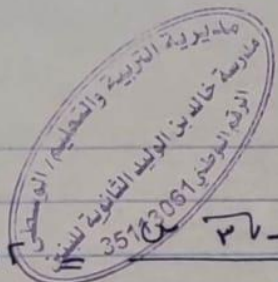 مديرية التربية والتعليم / الوسطى
مدرسة خالد بن الوليد الثانوية للبنين
الرقم الوطني 35143061
٣٦